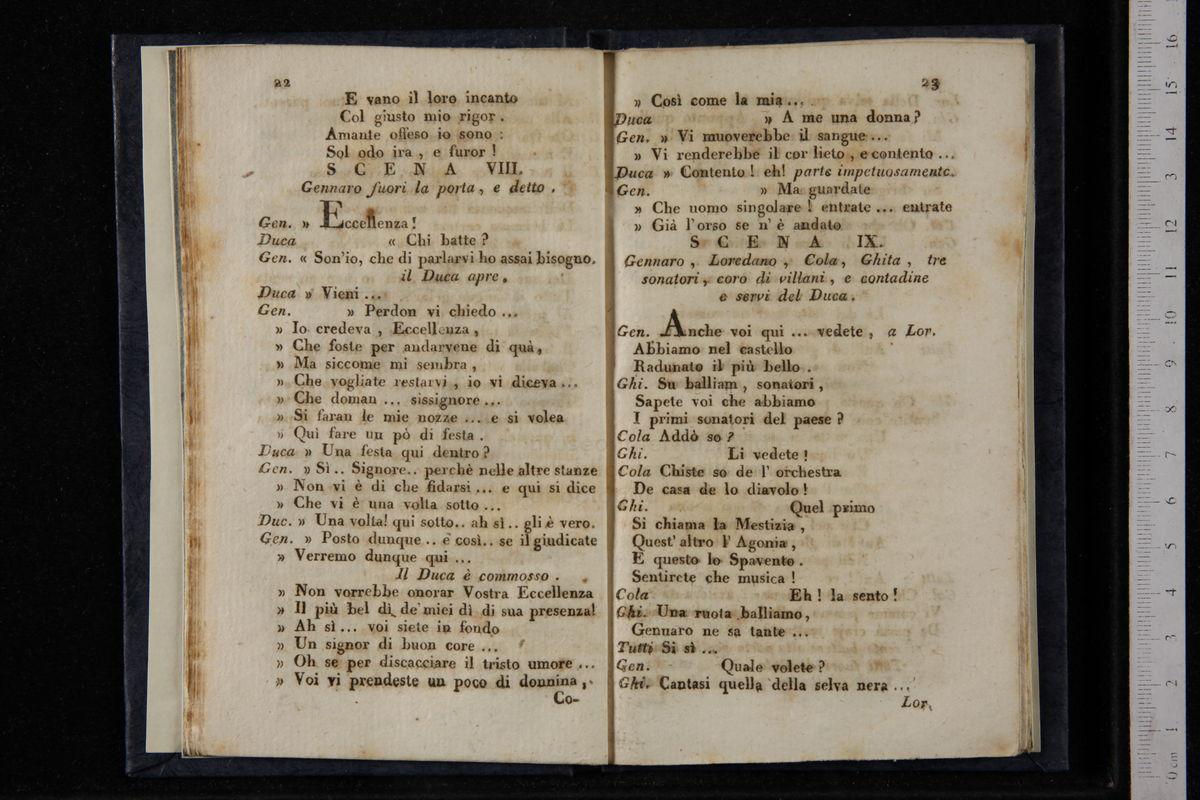 22
E vano il loro incanto
Col giusto mio rigor .
Amante offeso io sono :
Sol odo ira , e furor !
S C E N A VIII.
Gennaro fuori la porta , e detto .
Gen. » Eccellenza !
Duca « Chi batte ?
Gen. « Son'io, che di parlarvi ho assai bisogno.
il Duca apre .
Duca » Vieni ...
Gen. » Perdon vi chiedo ...
» Io credeva , Eccellenza ,
» Che foste per andarvene di quà,
» Ma siccome mi sembra ,
» Che vogliate restarvi , io vi diceva ...
» Che doman ... sissignore ...
» Si faran le mie nozze ... e si volea
» Quì fare un pò di festa .
Duca » Una festa qui dentro ?
Gen. » Sì .. Signore.. perchè nelle altre stanze
» Non vi è di che fidarsi ... e qui si dice
» Che vi è una volta sotto ...
Duc. » Una volta! qui sotto.. ah sì .. gli è vero.
Gen. » Posto dunque .. è così.. se il giudicate
» Verremo dunque qui ...
Il Duca è commosso .
» Non vorrebbe onorar Vostra Eccellenza
» Il più bel dì de' miei dì di sua presenza!
» Ah sì ... voi siete in fondo
» Un signor di buon core ...
» Oh se per discacciare il tristo umore ...
» Voi vi prendeste un poco di donnina ,
Co-
23
» Così come la mia ...
Duca » A me una donna ?
Gen. » Vi muoverebbe il sangue ...
» Vi renderebbe il cor lieto , e contento ...
Duca » Contento ! eh! parte impetuosamente.
Gen. » Ma guardate
» Che uomo singolare ! entrate ... entrate
» Già l'orso se n' è andato
S C E N A IX.
Gennaro , Loredano , Cola , Ghita , tre
sonatori , coro di villani , e contadine
e servi del Duca .
Gen. Anche voi qui ... vedete , a Lor.
Abbiamo nel castello
Radunato il più bello .
Ghi. Su balliam , sonatori ,
Sapete voi che abbiamo
I primi sonatori del paese ?
Cola Addò so ?
Ghi. Li vedete !
Cola Chiste so de l' orchestra
De casa de lo diavolo !
Ghi. Quel primo
Si chiama la Mestizia ,
Quest' altro l' Agonia ,
E questo lo Spavento .
Sentirete che musica !
Cola Eh ! la sento !
Ghi. Una ruota balliamo ,
Gennaro ne sa tante ...
Tutti Si sì ...
Gen. Quale volete ?
Ghi. Cantasi quella della selva nera ...
Lor.
0 cm 1 2 3 4 5 6 7 8 9 10 11 12 13 14 15 16